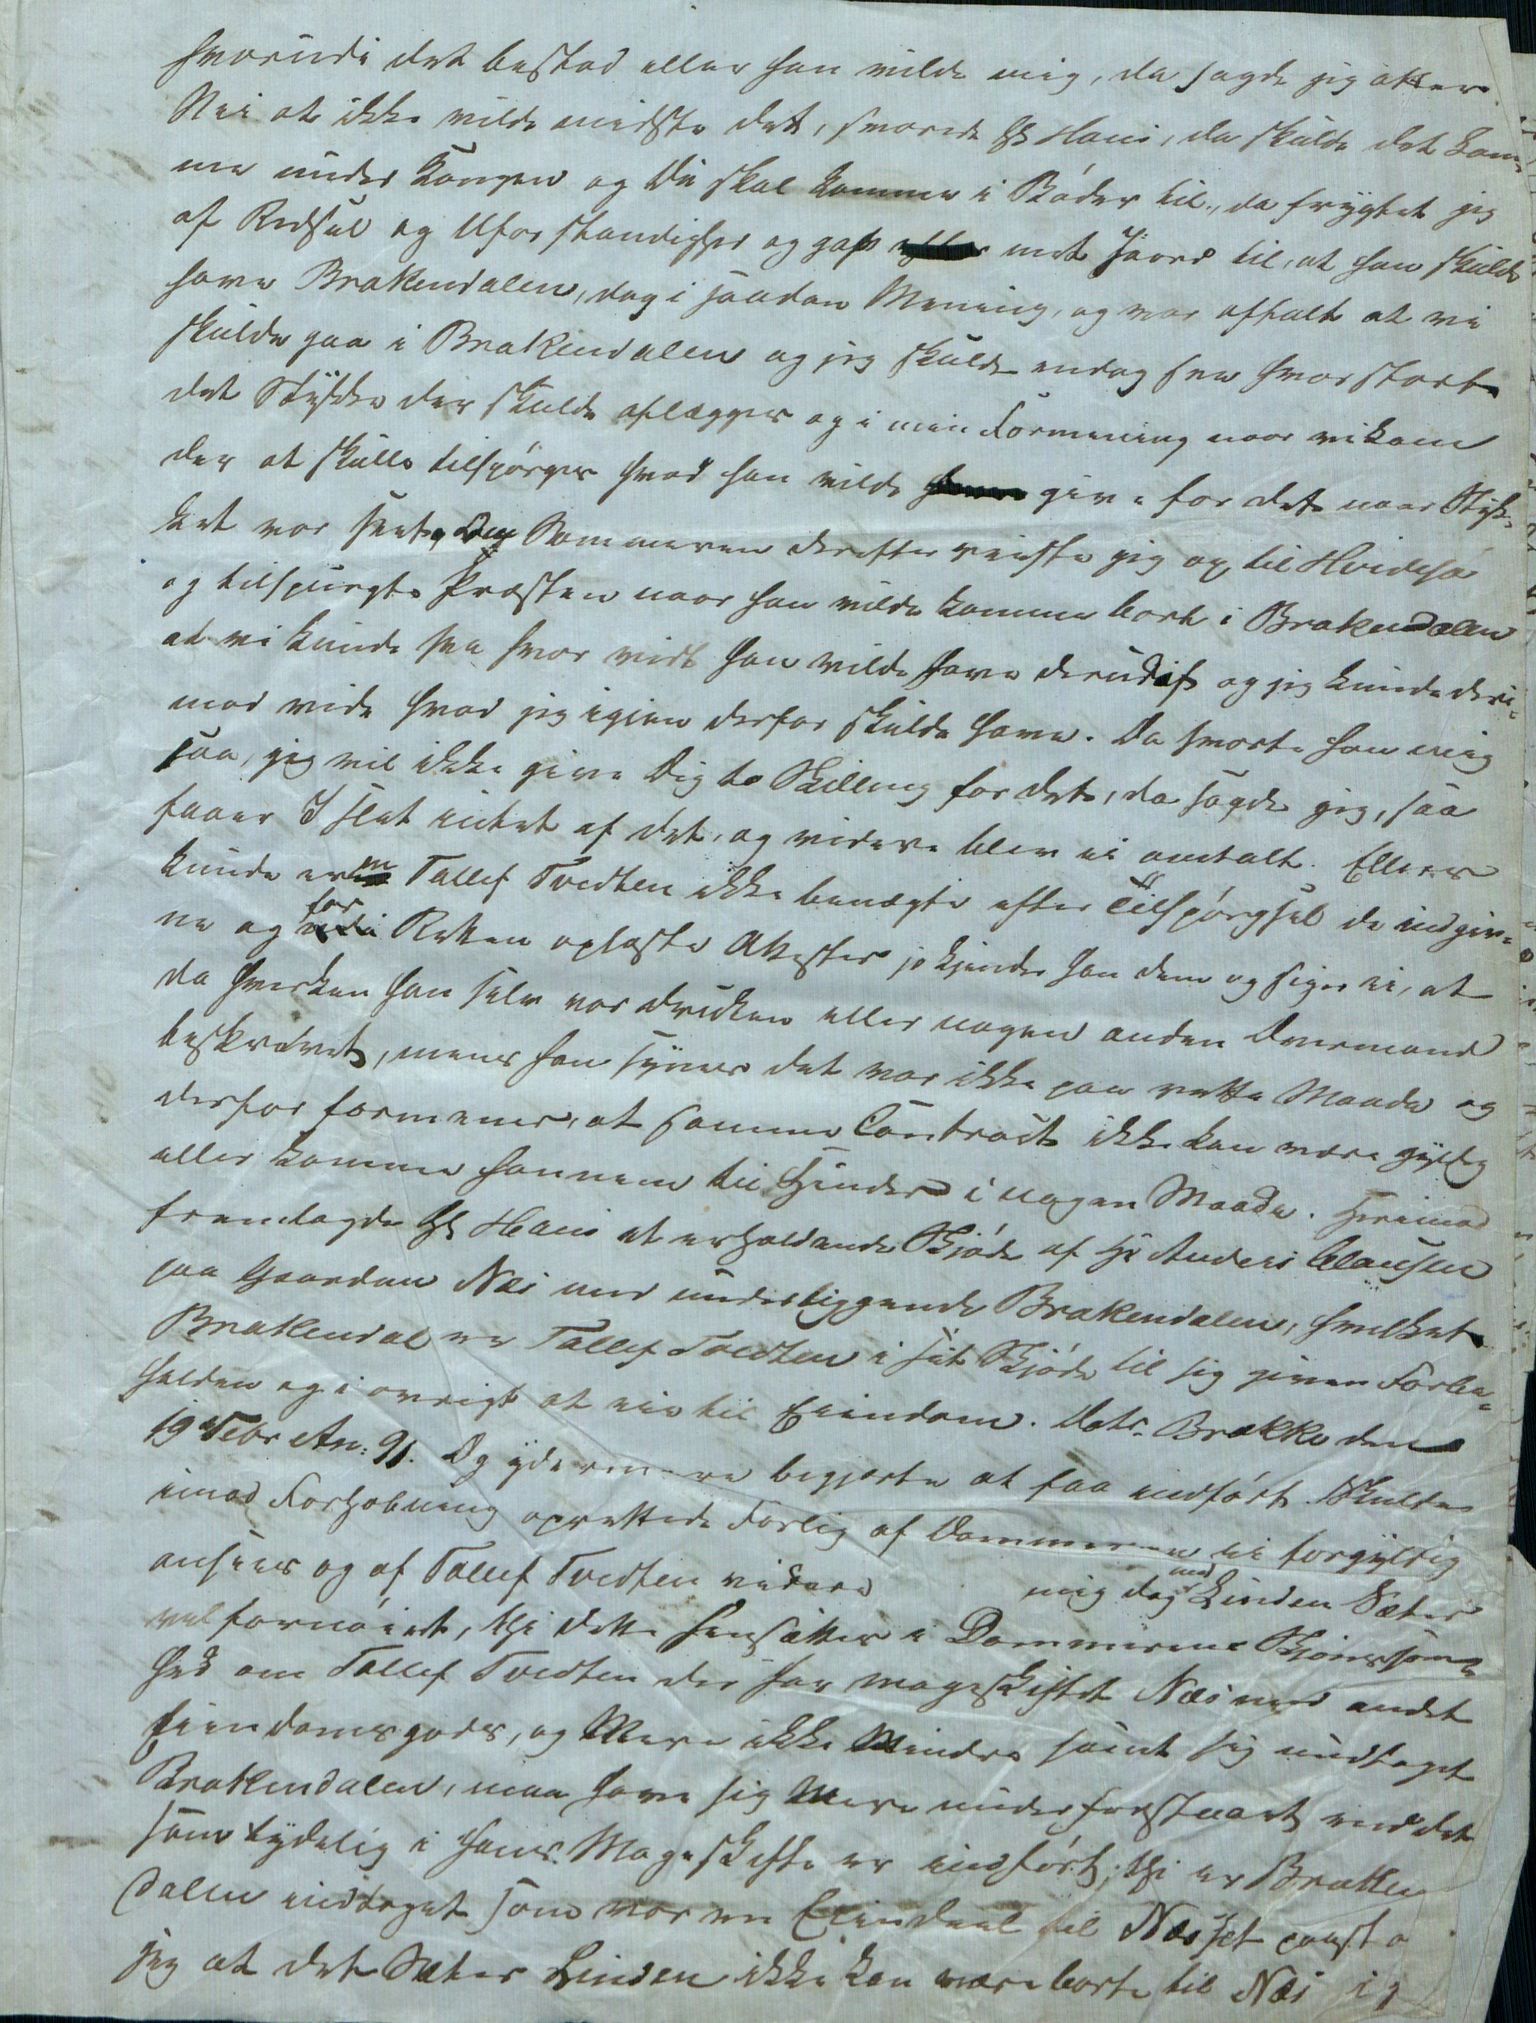 hvorudi det bestod eller han vilde mig, da sagde jeg atter
Nei at ikke vilde midste det, svarede Hr Hans, da skulde det kom-
me under Kongen og Du skal komme i Bøder til, da frygtet jeg
af Redsel og Uforstandighed og gaf mit Jaord til, at han skulde
have Brakendalen, dog i saadan Mening, og var aftalt at vi
skulde gaa i Brakendalen og jeg skulde endog see hvor stort
det Stykke der skulde aflægges og i min Formening naar vi kom
der at skulle tilspørges hvad han vilde give for det naar Styk-
ket var seet, Den Sommeren derefter reiste jeg op til Hvidesø
og tilspurgte Præsten naar han vilde komme bort i Brakendalen
at vi kunde see hvor vidt han vilde have derudaf og jeg kunde deri-
mod vide hvad jeg igien derfor skulde have. Da svarte han mig
saa, jeg vil ikke give Dig to Skilling for det, da sagde jeg, saa
faaer I slet intet af det, og videre blev ei omtalt. Ellers
kunde Tallef Tvedten ikke benægte efter Tilspørgsel de indgiv-
ne og for Retten oplæste Attester jo kjender han dem og siger ei, at
da hverken han selv var drukken eller nogen anden Dannemand
beskrevet, mens han synes det var ikke paa rette Maade og
derfor formener, at samme Contract ikke kan være gyldig
eller komme hannem til Hinder i nogen Maade. Herimod
fremlagde Hr Hans et erholdende Skjøde af Hr Anders Clausen
paa Gaarden Næs med underliggende Brakendalen, hvilket
Brakendal er Tallef Tvedten i sit Skjøde til sig given Forbe-
holden og i øvrigt at eie til Eiendom. Datr. Brække den
19 Febr An: 91. Og ydermere begjerte at faa indført. Skulde
imod Forhobning oprettede Forlig af Dommeren ei forgyldig
ansees og af Tallef Tvedten videre mig dog med Linden Sæter
vel fornøiet, thi dette hensættes i Dommerens Skjønsom-
hed om Tallef Tvedten der har mageskiftet Næs med andet
Eiendomsgods, og Mere ikke Mindre saint sig undtaget
Brakendalen, maa have sig Mere underforstaaet end det
som tydelig i hans Mageskifte er indført, thi er Bratten
dalen undtaget som var en Eiendeel til Næs, at paasta
jeg at det Sæter Linden ikke kan være borte til Næs ig